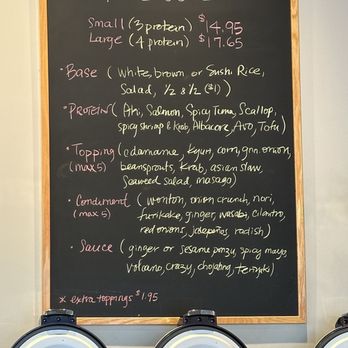 Small (3 protein) $14.95
Large (4 protein) $17.65
• Base (White, brown, or Sushi Rice,
Salad, ½ & ½ ($1))
• PROTEIN (Ahi, Salmon, Spicy Tuna, Scallop,
spicy shrimp & Krab, Albacore, Avo, Tofu)
• Topping (edamame, kyuri, corn, grn. onion,
(max 5) beansprouts, Krab, asian slaw,
Seaweed salad, masago)
• Condiment (wonton, onion crunch, nori,
(max 5) furikake, ginger, wasabi, cilantro,
red onions, jalapeños, radish)
• Sauce (ginger or sesame ponzu, spicy mayo,
volcano, crazy, chojang, teriyaki)
* extra toppings $1.95